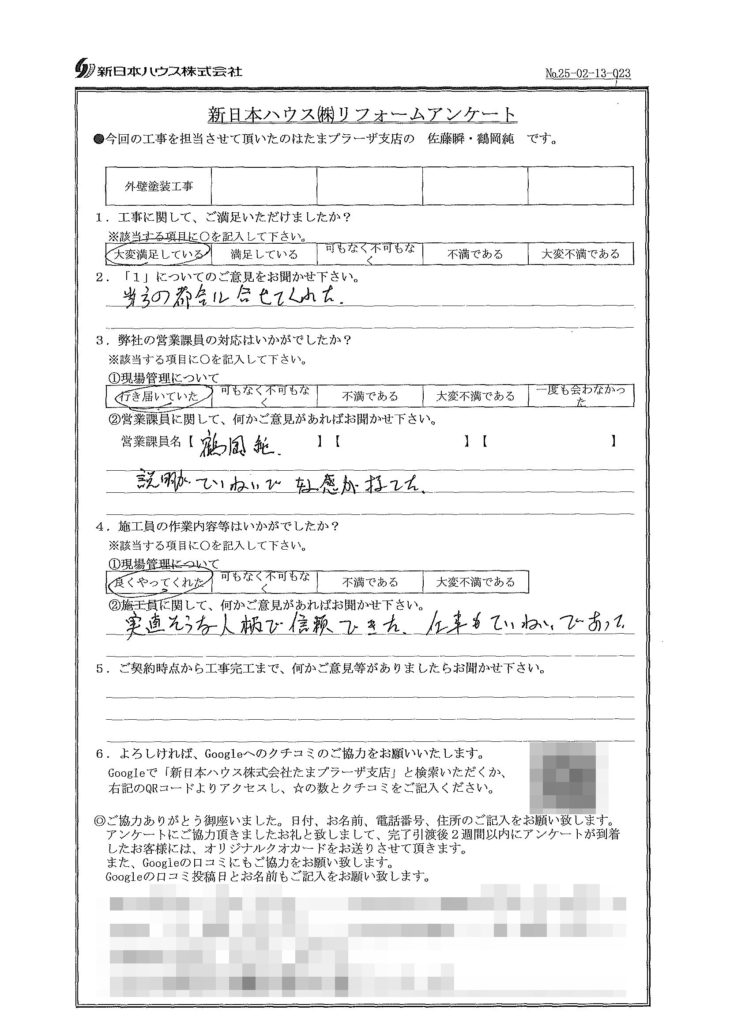 新日本ハウス株式会社
No.25-02-13-023
新日本ハウス㈱リフォームアンケート
●今回の工事を担当させて頂いたのはたまプラーザ支店の 佐藤瞬・鶴岡純 です。
外壁塗装工事
1．工事に関して、ご満足いただけましたか？
※該当する項目に○を記入して下さい。
大変満足している 満足している 可もなく不可もなく 不満である 大変不満である
2．「1」についてのご意見をお聞かせ下さい。
当方の都合に合せてくれた.
3．弊社の営業課員の対応はいかがでしたか？
※該当する項目に○を記入して下さい。
①現場管理について
行き届いていた 可もなく不可もなく 不満である 大変不満である 一度も会わなかった
②営業課員に関して、何かご意見があればお聞かせ下さい。
営業課員名【 鶴岡純. 】【 】【 】
説明がていねいで好感が持てた.
4．施工員の作業内容等はいかがでしたか？
※該当する項目に○を記入して下さい。
①現場管理について
良くやってくれた 可もなく不可もなく 不満である 大変不満である
②施工員に関して、何かご意見があればお聞かせ下さい。
実直そうな人柄で信頼できた. 仕事もていねいであった
5．ご契約時点から工事完工まで、何かご意見等がありましたらお聞かせ下さい。
6．よろしければ、Googleへのクチコミのご協力をお願いいたします。
Googleで「新日本ハウス株式会社たまプラーザ支店」と検索いただくか、
右記のQRコードよりアクセスし、☆の数とクチコミをご記入ください。
◎ご協力ありがとう御座いました。日付、お名前、電話番号、住所のご記入をお願い致します。
アンケートにご協力頂きましたお礼と致しまして、完了引渡後２週間以内にアンケートが到着
したお客様には、オリジナルクオカードをお送りさせて頂きます。
また、Googleの口コミにもご協力をお願い致します。
Googleの口コミ投稿日とお名前もご記入をお願い致します。